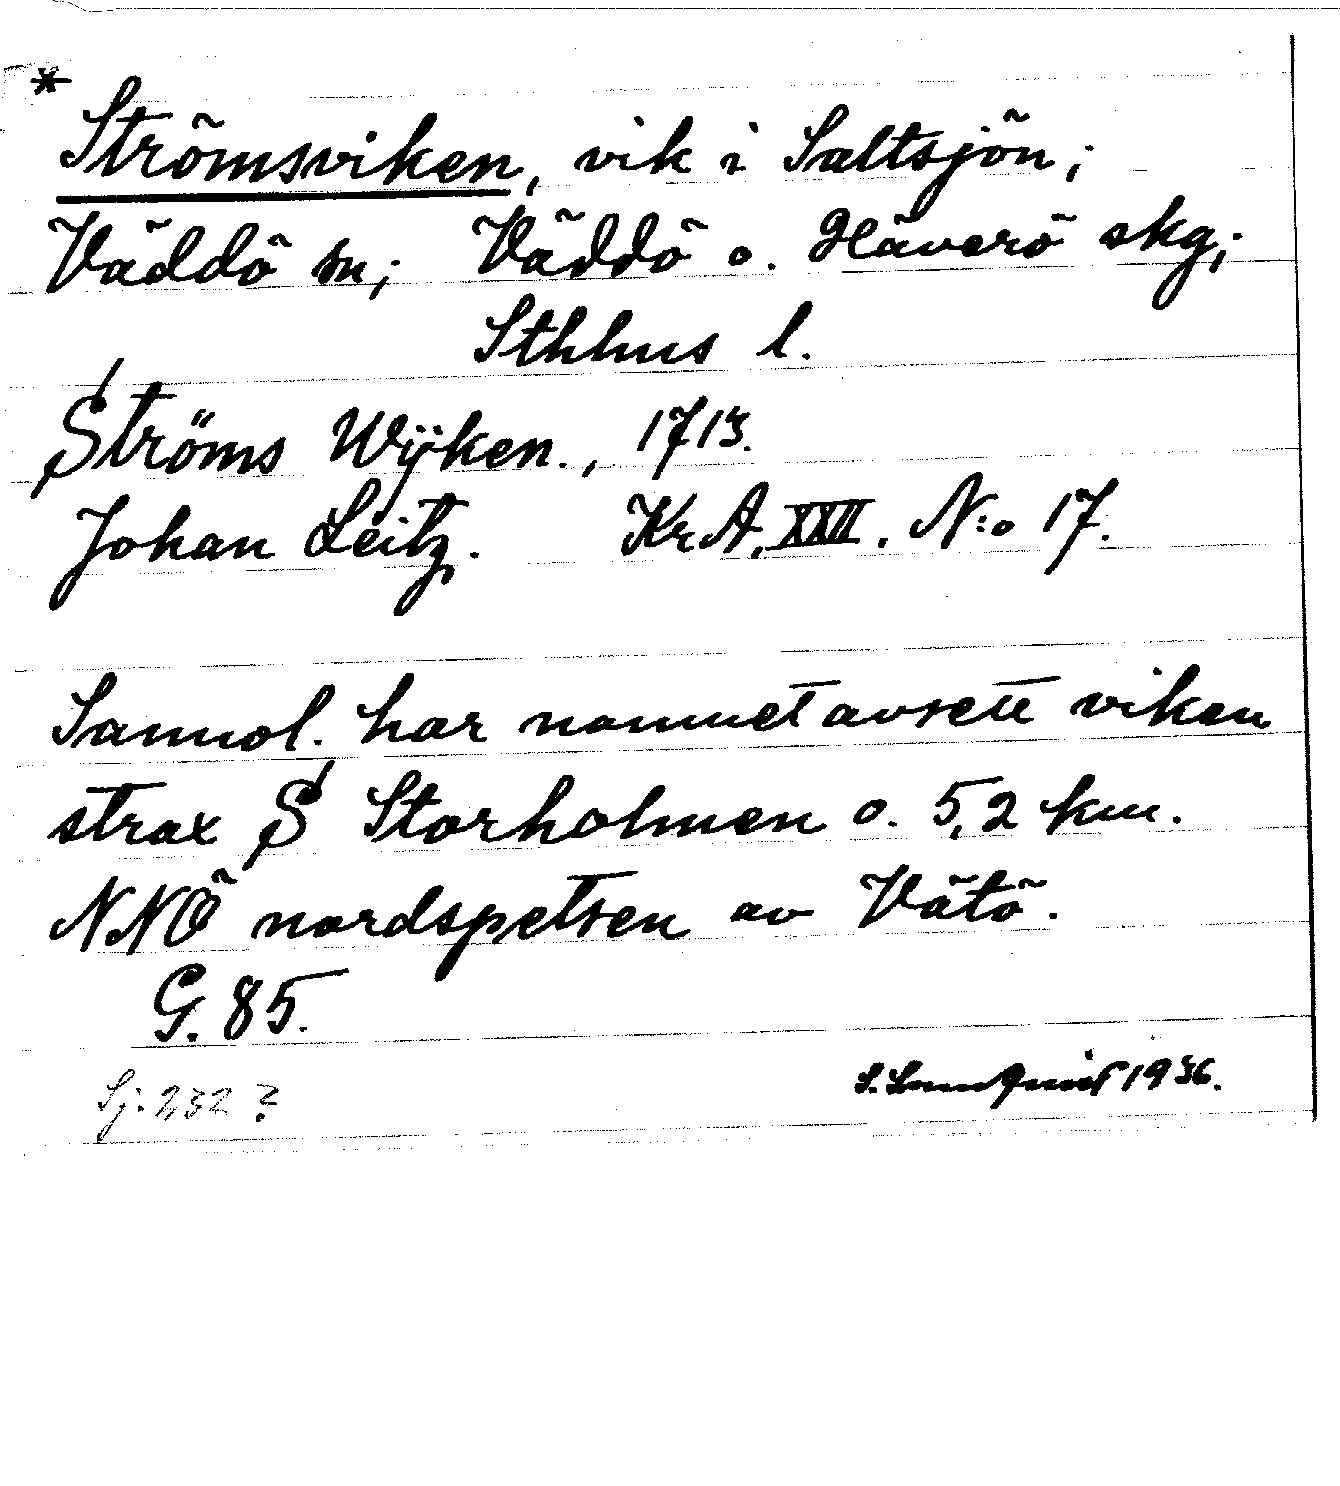 * Strömsviken, vik i Saltsjön;
Väddö sn; Väddö o. Häverö skg;
Sthlms l.
Ströms Wijken., 1713.
Johan Leitz. KrA. XXII. N:o 17.
Sannol. har namnet avsett viken
strax S Storholmen o. 5,2 km.
NNÖ nordspetsen av Vätö.
G. 85.
Sj. 232?
1936.